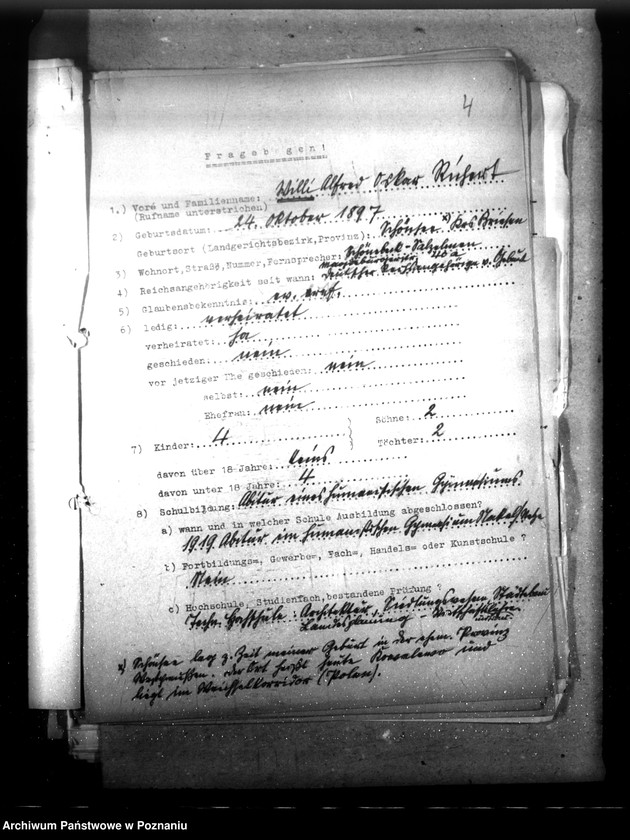 4
Fragebogen!
1.) Vor= und Familienname: Willi Alfred Oskar Richert
(Rufname unterstrichen)
2) Geburtsdatum: 24. Oktober 1897
Geburtsort (Landgerichtsbezirk, Provinz): Schönsee x) Krs Briesen
3) Wohnort, Straße, Nummer, Fernsprecher: Schönebeck-Salzelmen
Magdeburgerstr. 40a
4) Reichsangehörigkeit seit wann: deutscher Reichsangehöriger v. Geburt
5) Glaubensbekenntnis: ev.
6) ledig: verheiratet
verheiratet: ja
geschieden: nein
vor jetziger Ehe geschieden: nein
selbst: nein
Ehefrau: nein
7) Kinder: 4 Söhne: 2
Töchter: 2
davon über 18 Jahre: keins
davon unter 18 Jahre: 4
8) Schulbildung: Abitur eines humanistischen Gymnasiums.
a) wann und in welcher Schule Ausbildung abgeschlossen?
1919 Abitur im humanistischen Gymnasium Nakel/Netze
b) Fortbildungs=, Gewerbe=, Fach=, Handels= oder Kunstschule ?
Nein
c) Hochschule, Studienfach, bestandene Prüfung ?
Techn. Hochschule: Architektur, Siedlungswesen Städtebau
Landesplanung - Wirtschaftslehre
x) Schönsee lag z. Zeit meiner Geburt in der ehem. Provinz
Westpreußen. Der Ort heißt heute Kowalewo und
liegt im Weichselkorridor (Polen).
Archiwum Państwowe w Poznaniu